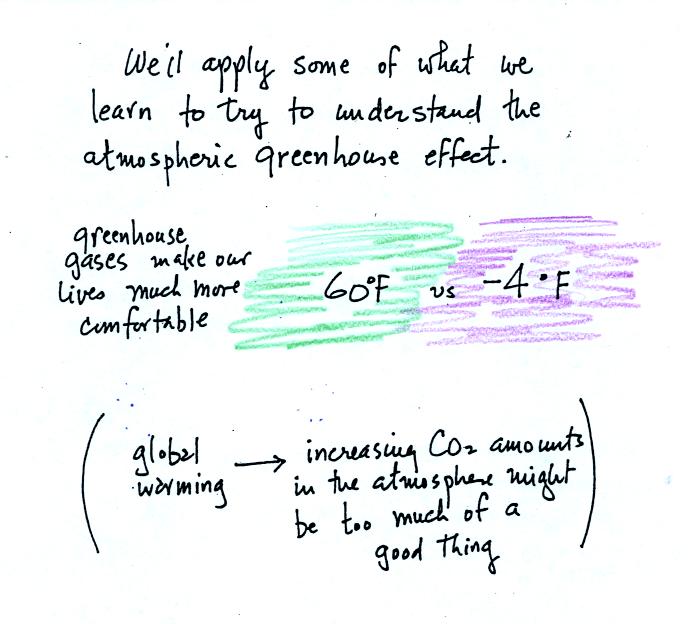 We'll apply some of what we
learn to try to understand the
atmospheric greenhouse effect.
greenhouse
gases make our
lives much more
comfortable
60°F vs -4°F
global
warming
→
increasing CO₂ amounts
in the atmosphere might
be too much of a
good thing